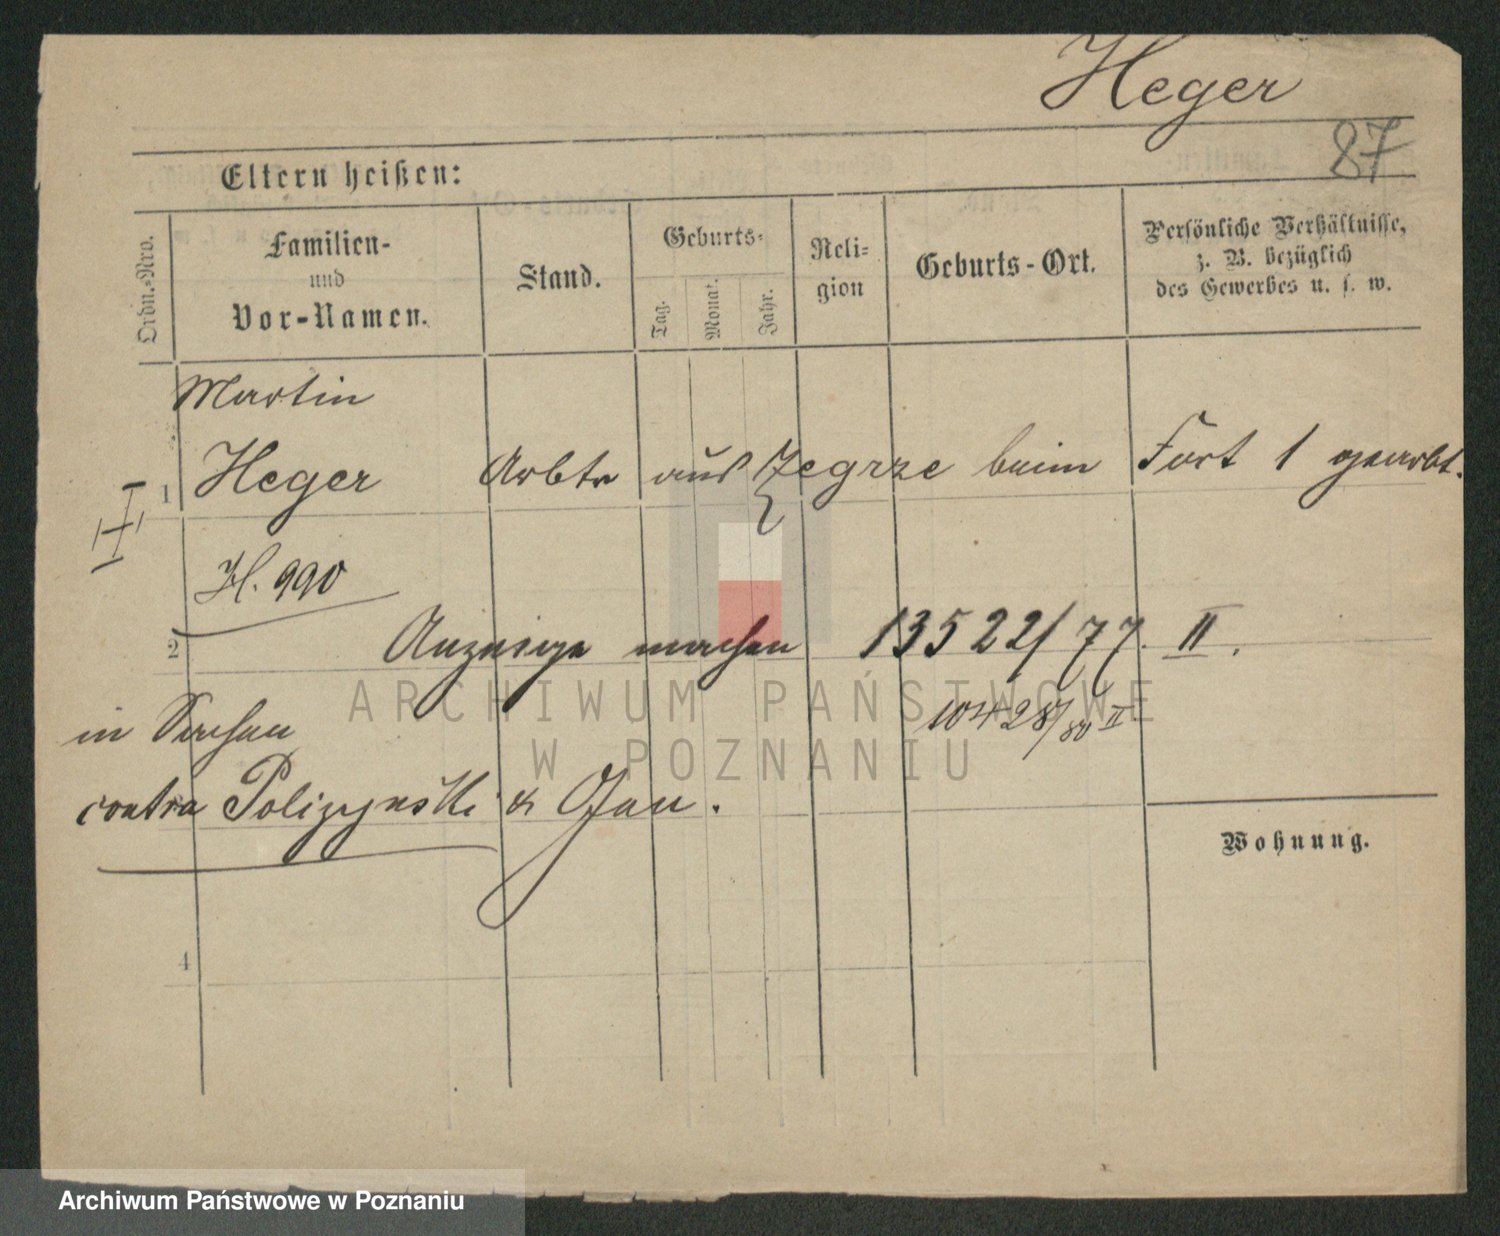 Heger
87
Eltern heißen:
Ordn.-Nro.
Familien-
und
Vor-Namen.
Stand.
Geburts-
Tag.
Monat.
Jahr.
Reli-
gion
Geburts-Ort.
Persönliche Verhältnisse,
z. B. bezüglich
des Gewerbes u. s. w.
Martin
1 Heger Arbtr aus Zegrze beim Fort 1 gearbt.
H. 990
2 Anzeige machen 13522/77. II.
in Sachen 10428/80 II
contra Polizynski & Gen.
Wohnung.
4
ARCHIWUM PAŃSTWOWE
W POZNANIU
Archiwum Państwowe w Poznaniu